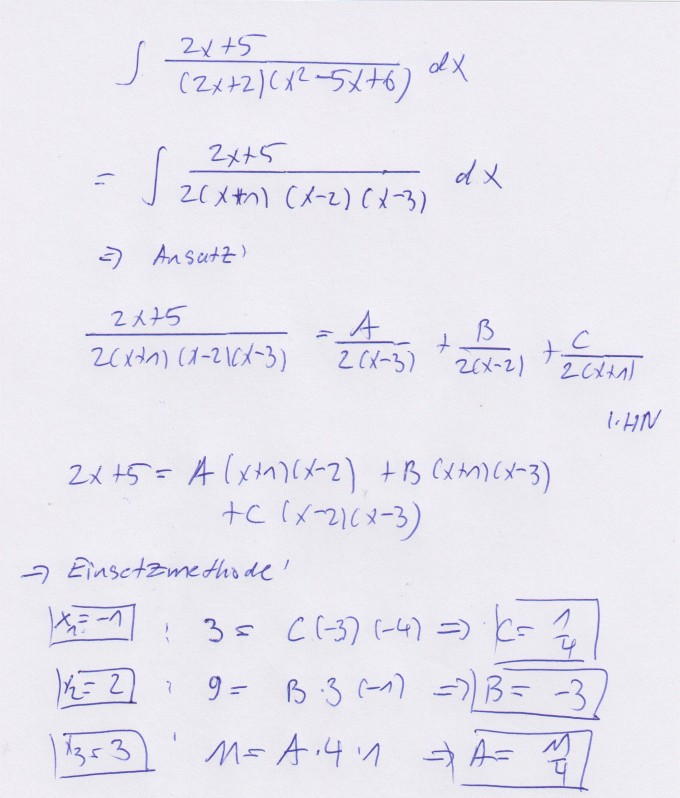 ∫ (2x+5)/((2x+2)(x²-5x+6)) dx
= ∫ (2x+5)/(2(x+1)(x-2)(x-3)) dx
=> Ansatz:
(2x+5)/(2(x+1)(x-2)(x-3)) = A/(2(x-3)) + B/(2(x-2)) + C/(2(x+1))
|·HN
2x+5 = A(x+1)(x-2) + B(x+1)(x-3)
+C (x-2)(x-3)
=> Einsetzmethode:
x₁=-1 : 3 = C(-3)(-4) => C= 1/4
x₂=2 : 9 = B·3(-1) => B= -3
x₃=3 : 11 = A·4·1 => A= 11/4